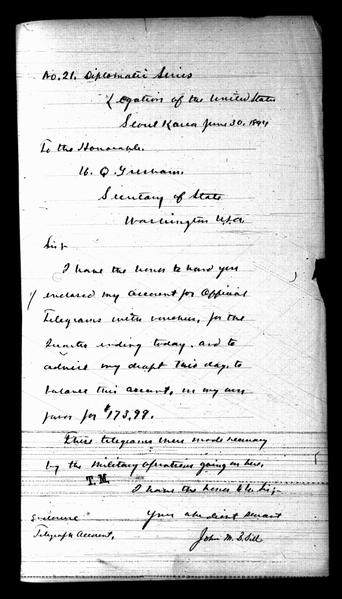 No. 21. Diplomatic Series
Legation of the United States
Seoul Korea June 30. 1894
To the Honorable.
W. Q. Gresham.
Secretary of State
Washington U.S.A.
Sir;-
I have the honor to hand you
enclosed my account for Official
Telegrams with vouchers, for the
Quarter ending today. and to
advise my draft this day, to
balance this account, in my own
favor for $173.98.
These telegrams were made necessary
by the military operations going on here.
T.M.
I have the honor to be Sir,-
Your obedient servant
Enclosure
Telegraph Account.
John M. B. Sill